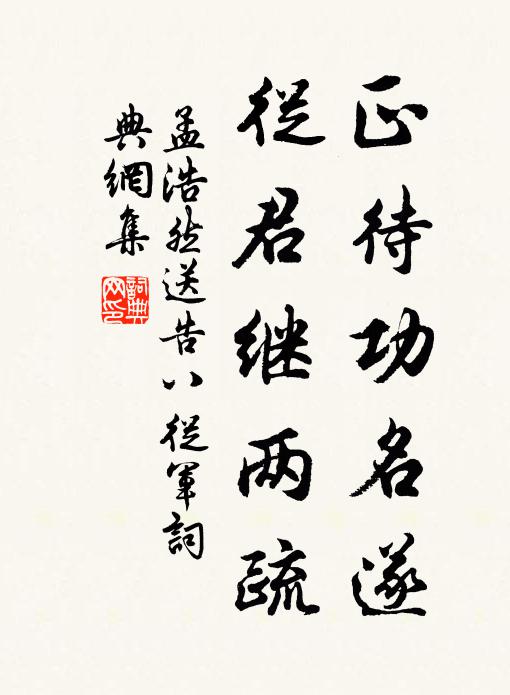 正待功名遂
從君继两疏
孟浩然送告八從軍詞
典網集
詞典网印